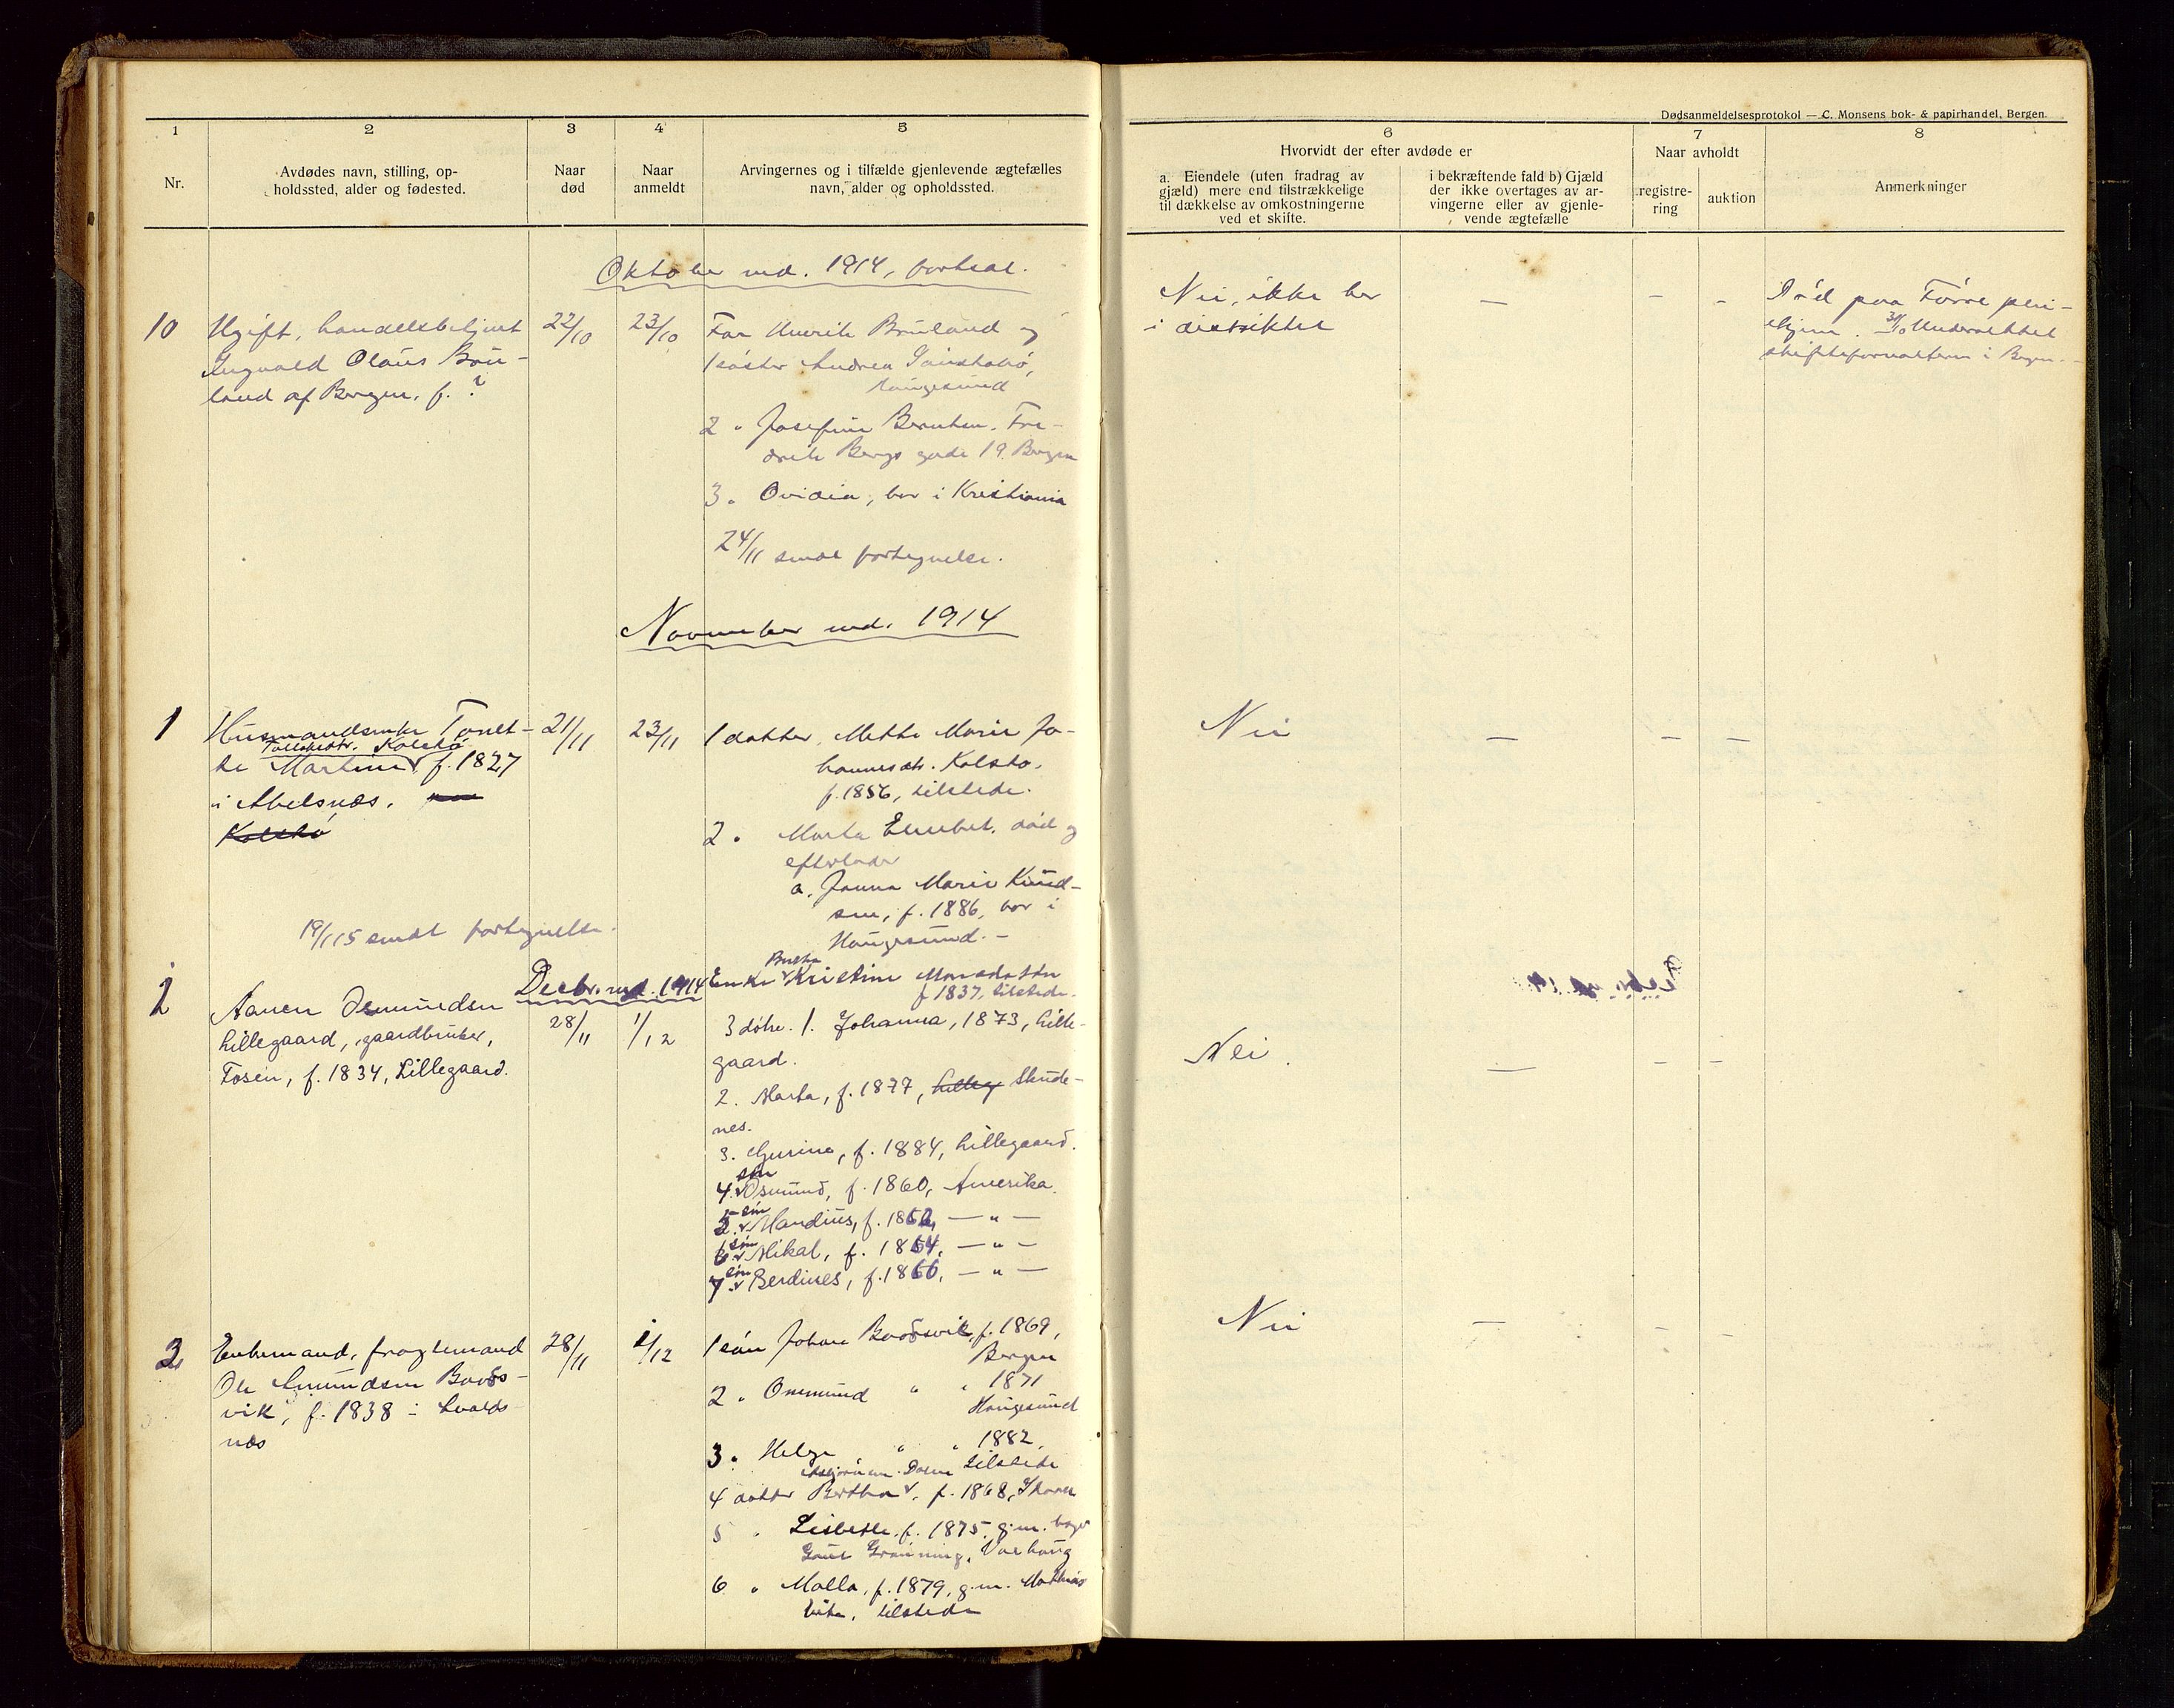 Dødsanmeldelsesprotokol — C. Monsens bok- & papirhandel, Bergen.
1
2
3
4
5
6
7
8
Nr.
Avdødes navn, stilling, op-
holdssted, alder og fødested.
Naar
død
Naar
anmeldt
Arvingernes og i tilfælde gjenlevende ægtefælles
navn, alder og opholdssted.
Hvorvidt der efter avdøde er
a. Eiendele (uten fradrag av
gjæld) mere end tilstrækkelige
til dækkelse av omkostningerne
ved et skifte.
i bekræftende fald b) Gjæld
der ikke overtages av ar-
vingerne eller av gjenle-
vende ægtefælle
Naar avholdt
registre-
ring
auktion
Anmerkninger
Oktober md. 1914, fortsat.
10
Ugift, handelsbetjent
Ingvald Olaus Brü-
land af Bergen, f. ?
22/10
23/10
Far Henrik Brüland og
1 søster Andrea
Haugesund
2 " Josefine Berntsen, Fre-
drik Bergs gade 19 Bergen
3 " Ovidia, bor i Kristiania
24/11 sendt fortegnelse.
Nei, ikke her
i distriktet
—
-
-
Død paa Førre plei-
ehjem. 31/10 Underrettet
skifteforvalteren i Bergen.
November md. 1914
1
Husmandsenke Tonet-
Kolstø
te Martine f. 1827
i Abelsnæs.
Kolstø
21/11
23/11
1 datter, Mette Marie Jo-
hannesdtr. Kolstø,
f. 1856, tilstede.
2 " Marta Elisebet, død og
efterlader
a. Janna Marie Knud-
sen, f. 1886, bor i
Haugesund. -
Nei
—
—
—
19/1 15 sendt fortegnelse.
Decbr. md. 1914
1
Aanen Osmundsen
Lillegaard, gaardbruker,
Fosen, f. 1834, Lillegaard.
28/11
1/12
Berta
Enke Kristine Monsdatter
f 1837, tilstede.
3 døtre. 1. Johanna, 1873, Lille-
gaard.
2. Marta, f. 1877, Lilleg Skude-
nes.
3. Gurine, f. 1884, Lillegaard.
søn
4. Osmund, f. 1860, Amerika.
søn
5. Mandius, f. 1862, — " —
søn
6. Mikal, f. 1864, — " —
søn
7. Berdines, f. 1866, — " —
Nei.
—
—
—
2
Enkemand, fraglemand
Ole Amundsen Bods-
vik, f. 1838 i Avalds-
nes
28/11
1/12
1 søn Johan Bodsvik, f. 1869,
Bergen
2 " Ommund " " 1871
Haugesund
3 " Helge " " 1882,
tilstede
4 datter Bertha, f. 1868, Skaare
5 " Lisbeth, f. 1875, g.m.
6 " Malla, f. 1879, g.m. Mathias
tilstede
Nei
—
-
-